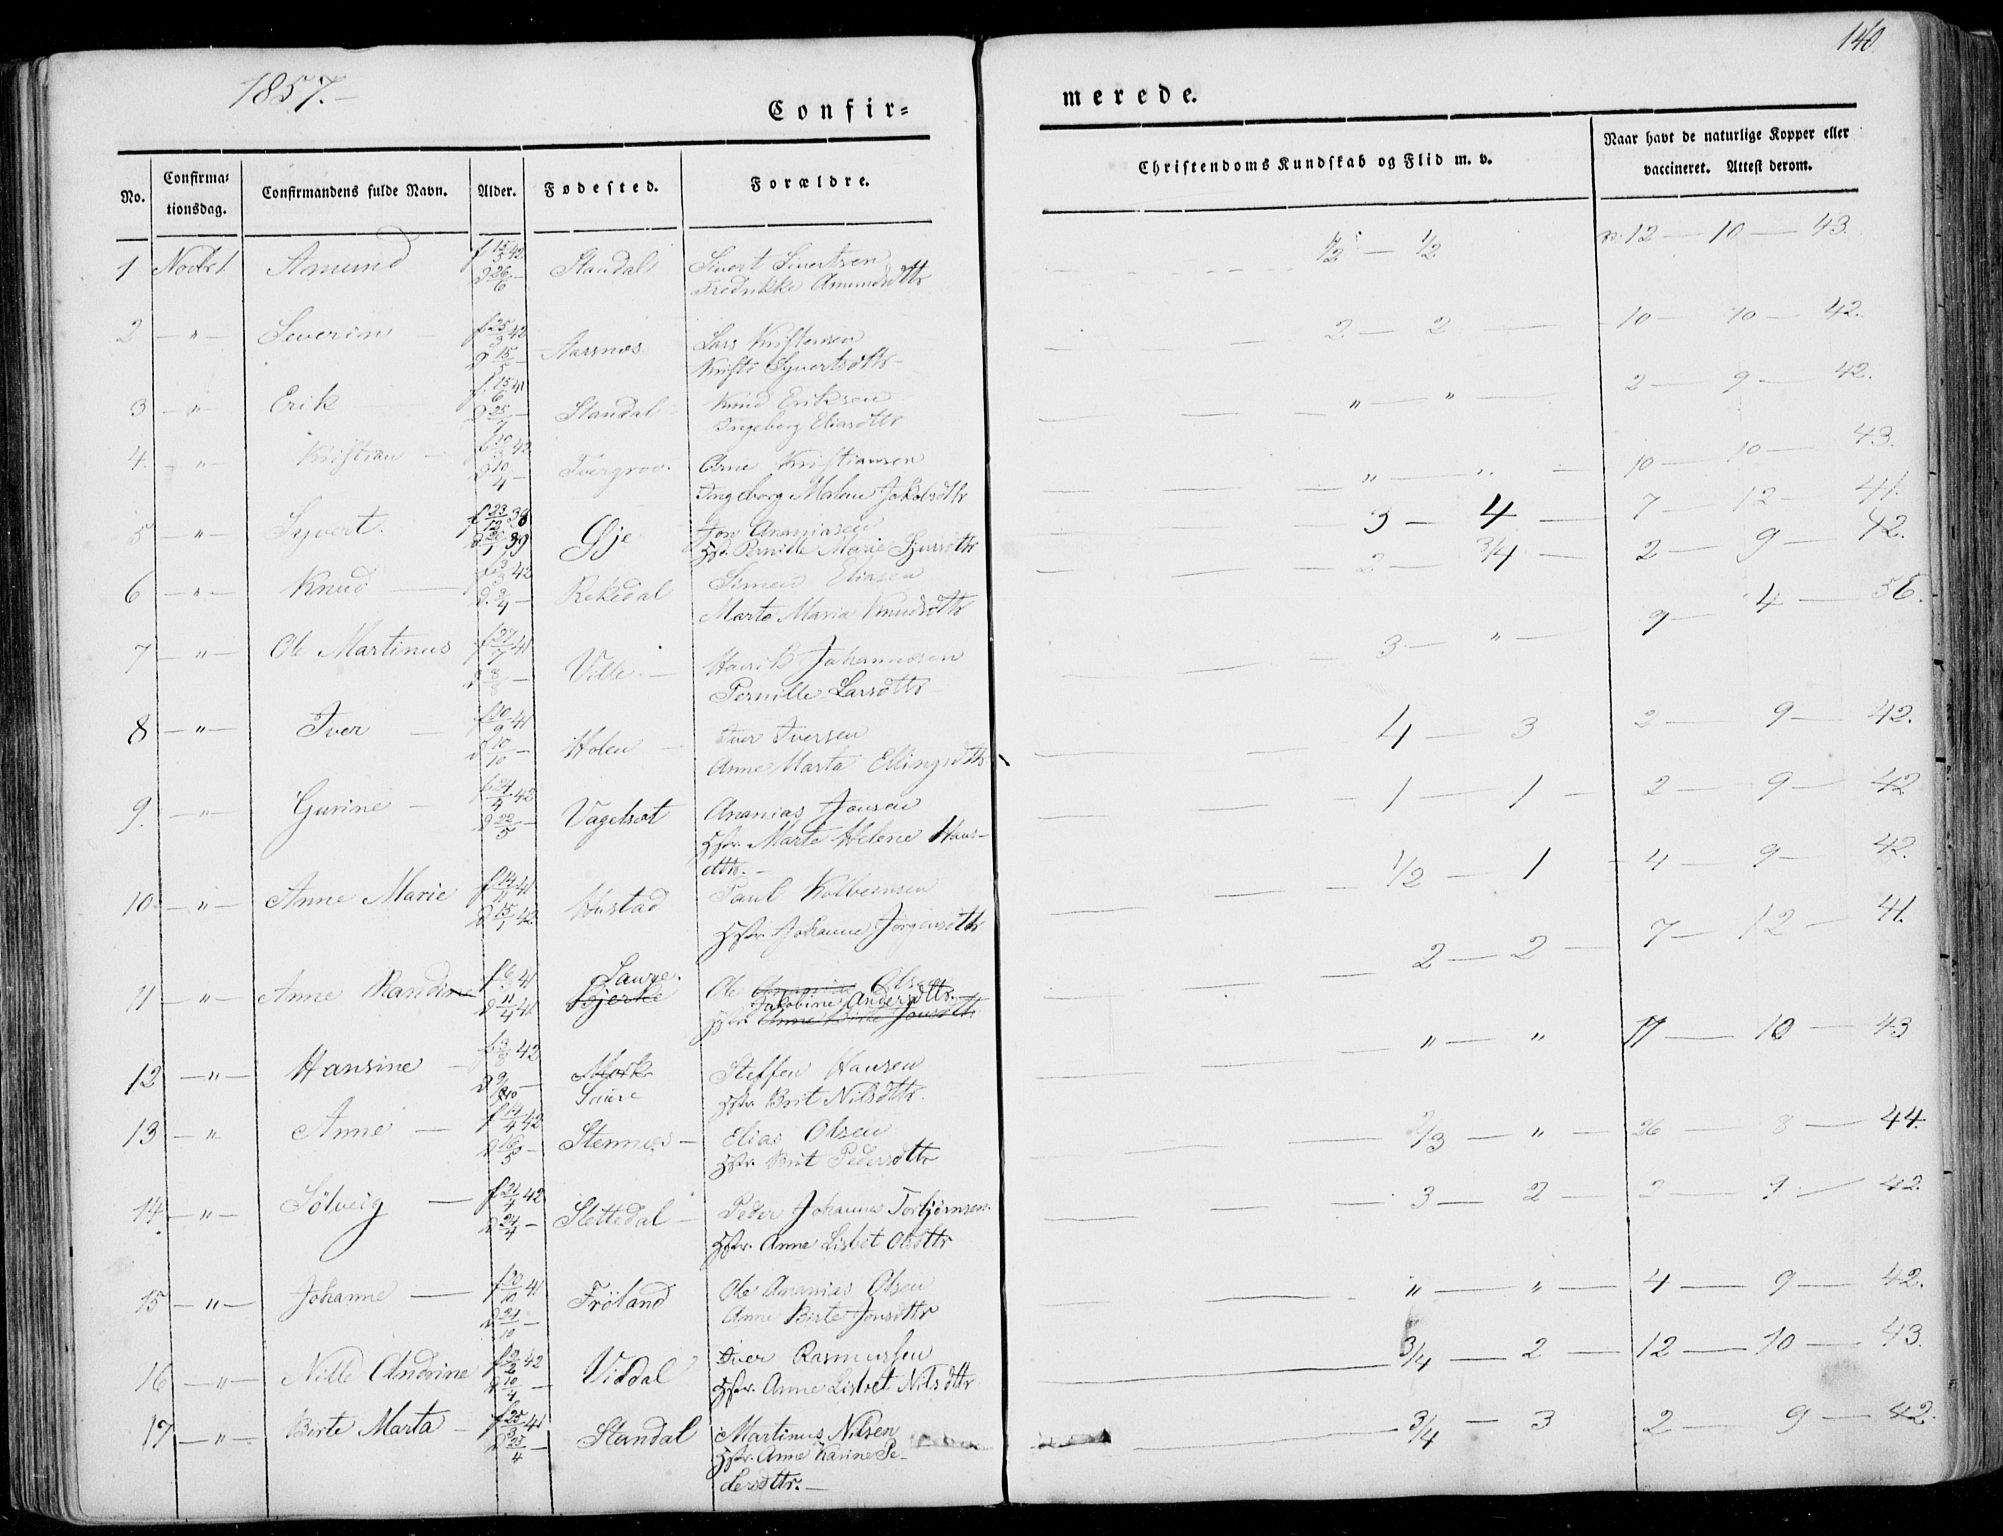 1857.-
140
Confir=
merede.
No.
Confirma=
tionsdag.
Confirmandens fulde Navn.
Alder.
Fødested.
Forældre.
Christendoms Kundskab og Flid m. v.
Naar havt de naturlige Kopper eller
vaccineret. Attest derom.
1 Novbr 1. Amund f 15/3 42 Standal Sivert Sivertsen 1/2 — 1/2 v. 12 — 10 — 43.
d 26/6 — Fredrikke Amundsdttr
2 — " — Severin — f 25/3 42 Aarsnes Lars Kristensen 2 — 2 — 10 — 10 — 42.
d 15/5 Kristi Syvertsdttr —
3 — " — Erik f. 15/6 41 Standal — Knud Eriksen " — " — 2 — 9 — 42.
d 25/7 — Ingeborg Eliasdttr
4. — " — Kristian — f 10/3 42 Tvergrov. Arne Kristiansen " — " — 10 — 10 — 43.
d 10/4 — Ingeborg Malene Jakobsdttr
5 — " — Syvert. f 23/12 38 Øje Jon Ananiasen 3 — 4 — 7 — 12 — 41.
d 20/1 39 Hstr. Pernille Marie Sjursdttr
6 — " — Knud — f 3/3 42 Rekedal Simen Eliasen 2 — 3/4 — 2 — 9 — 42.
d. 3/4 — Marte Maria Knudsdttr
7 — " — Ole Martinus f 27/7 41 Velle — Henrik Johannesen 3 — " — 9 — 4 — 56.
d 8/8 — Pernille Larsdttr —
8 — " — Iver — f 10/9 41 Holen — Iver Iversen 4 — 3 2 — 9 — 42.
d 10/10 — Anne Marta Ellingsdttr
9. — " — Gurine — f 24/4 42 Vagelsæt Ananias Jonsen 1 — 1 — 2 — 9 — 42
d 22/5 — Hstr. Marte Helene Hans-
dttr. —
10. — " — Anne Marie f 14/11 41 Hustad Paul Kolbeinsen 1/2 — 1 — 4 — 9 — 42.
d 15/1 42. Hstr. Johanne Jørgensdttr
11 — " — Anne Randine f 6/3 41 Saure. Ole Ananias Olsen 2 — 2 — 7 — 12 — 41.
d 11/4 41 Bjerke Jakobine Andersdttr.
Hstr. Anne Birte Jonsdttr
12 — " — Hansine — f 3/9 42 Mork Steffen Hansen " — " 11 — 10 — 43
d 9/10 — Saure Hstr. Brit Nilsdttr.
13 — " Anne — f 14/4 42 Stennes — Elias Olsen 2/3 — " — 26 — 8 — 44.
d 16/5 — Hstr. Brit Pedersdttr
14. — " — Sölveig — f 21/4 42 Slettedal — Peder Johannes Torbjørnsen. 3 — 2 — 2 — 9 — 42.
d 24/4 — Hstr. Anne Lisbet Olsdttr
15 — " — Johanne — f 20/10 41 Fröland Ole Ananias Olsen " — " — 4 — 9 — 42.
d 24/10 — Anne Birte Jonsdttr
16 — " — Nille Andrine f 9/2 42 Viddal Iver Rasmussen 3/4 — 2 — 12 — 10 — 43.
d 10/4 — Hstr. Anne Lisbet Nilsdttr
17 — " — Birte Marta — f 25/3 41 Standal Martinus Nilsen 3/4 — 3 2 — 9 — 42.
d 25/4 — Hstr. Anne Karine Pe-
dersdttr. —